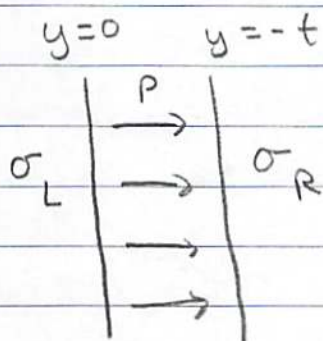 y=0 y=-t
P
σ_L σ_R